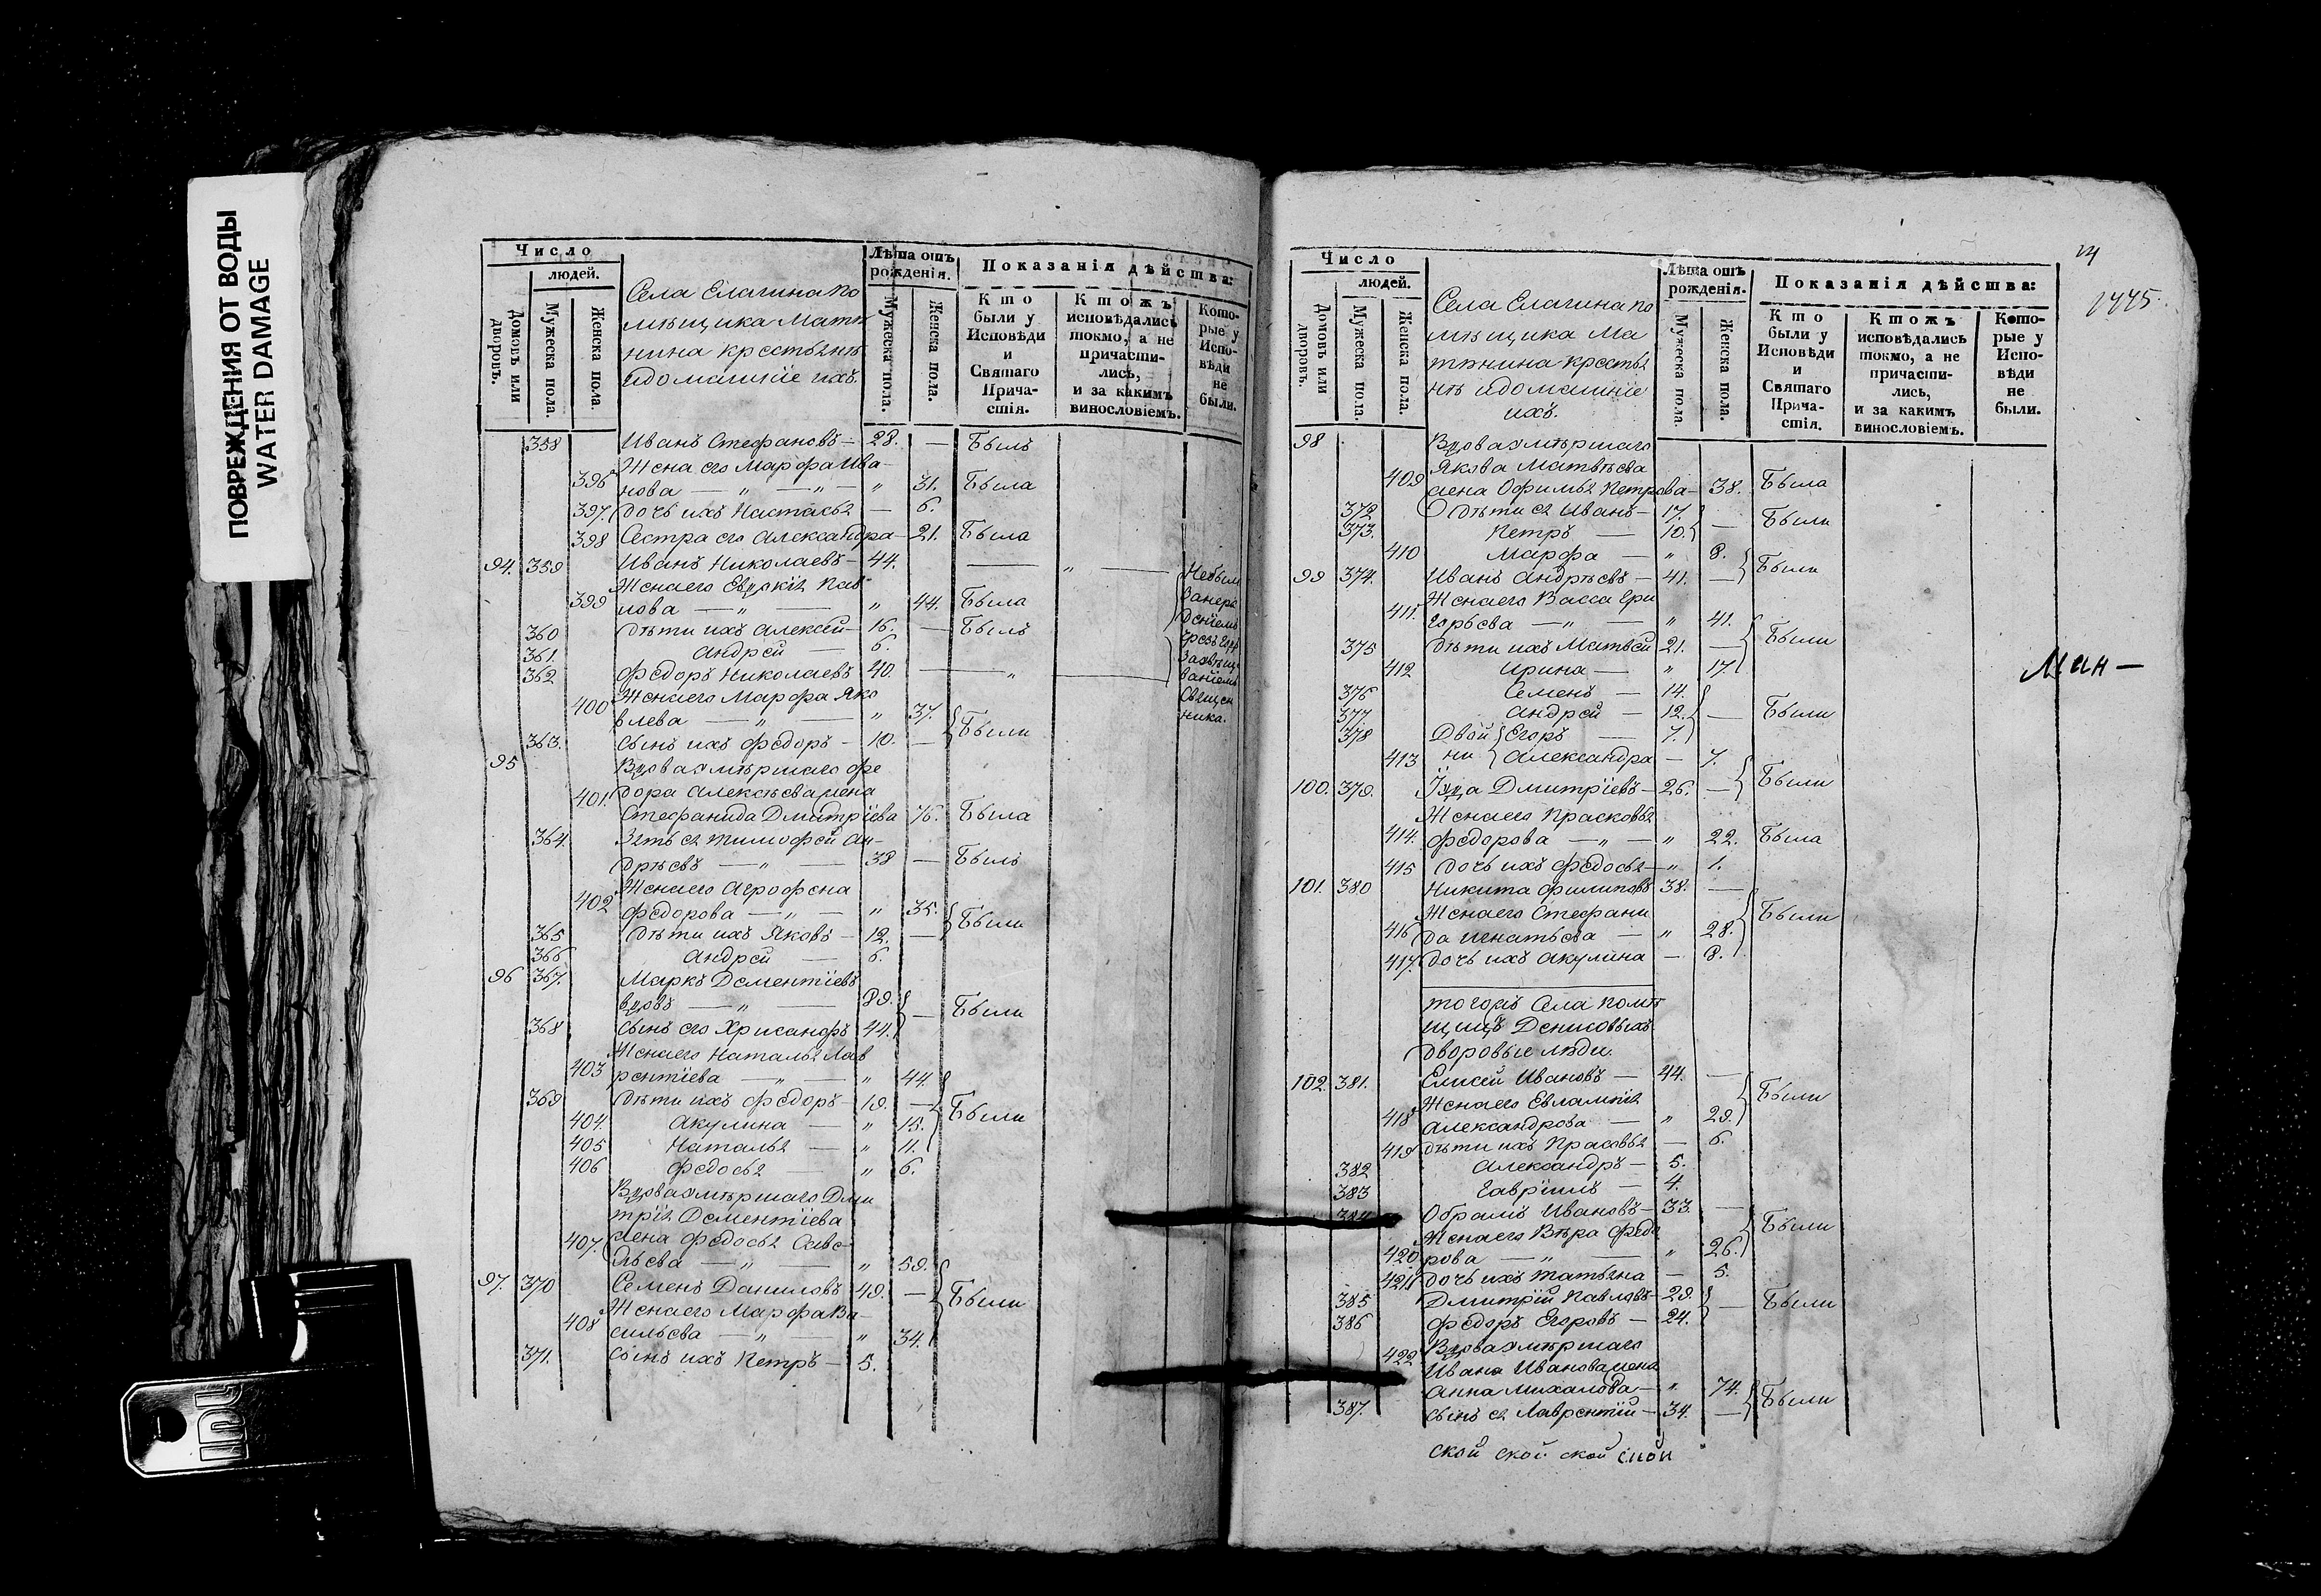 ПОВРЕЖДЕНИЯ ОТ ВОДЫ
WATER DAMAGE
Число
людей.
Домовъ или дворовъ.
Мужеска пола.
Женска пола.
Села Елагина по
мѣщика Матю
нина крестьянѣ
идомашніе ихъ.
Лѣта отъ рожденія.
Мужеска пола.
Женска пола.
Показанія дѣйства:
Кто были у Исповѣди и Святаго Причастія.
Ктожъ исповѣдались токмо, а не причастились, и за какимъ винословіемъ.
Которые у Исповѣди не были.
358 Иванъ Стефановъ — 28. — Былъ
Жена его Марфа Ива-
396 нова — „ — „ — „ 31. Была
397. дочь ихъ Настасья — 6.
398 Сестра его Александра — 21. Была
94. 359 Иванъ Николаевъ — 44. — „ —
Жена его Евдокія Пав
399 лова — „ — „ 44. Была
360 Дѣти ихъ Алексѣй — 16. — Былъ
361. Андрей — 6.
362 Федоръ Николаевъ 40. — „ —
Небыли
Занера
деніемъ
Священ
ника.
Жена его Марфа Яко
400 влева — „ — „ 37. Были
363. Сынъ ихъ Федоръ — 10. —
95 Вдова умѣршаго Фе
401. дора Алексѣева жена
Стефанида Дмитріева 76. Была
364. Зять ея Тимофей Ан-
дрѣевъ — „ — 38 — Былъ
Жена его Агрофена
402 Федорова — „ — „ 35. Были
365 Дѣти ихъ Яковъ — 12. —
366 Андрей — 6.
96 367. Маркъ Дементіевъ
вдовъ — „ — 89. — Были
368 Сынъ его Хрисанфъ 44.
Жена его Наталья Лав
403 рентіева — „ — „ 44.
369 Дѣти ихъ Федоръ — 19. — Были
404. Акулина — „ 15.
405 Наталья — „ 11.
406 Федосья — „ 6.
Вдова умѣршаго Дми
трія Дементіева
407. жена Федосья Саве-
льева — „ — „ 59.
97. 370 Семенъ Даниловъ 49. — Были
Жена его Марфа Ва-
408 сильева — „ — „ 34.
371. Сынъ ихъ Петръ — 5.
Число
людей.
Домовъ или дворовъ.
Мужеска пола.
Женска пола.
Села Елагина по
мѣщика Ма
тюнина крестья
нѣ идомашніе
ихъ.
Лѣта отъ рожденія.
Мужеска пола.
Женска пола.
Показанія дѣйства:
Кто были у Исповѣди и Святаго Причастія.
Ктожъ исповѣдались токмо, а не причастились, и за какимъ винословіемъ.
Которые у Исповѣди не были.
98 Вдова умѣршаго
Якова Матвѣева
409 жена Офимья Петрова — 38. Была
372 Дѣти ея Иванъ — 17. — Были
373. Петръ — 10.
410 Марфа — „ 8.
99 374. Иванъ Андрѣевъ — 41. — Были
Жена его Васса Гри
411 горьева — „ — „ 41.
375 Дѣти ихъ Матвей 21. — Были
412 Ирина — „ 17.
376 Семенъ — 14.
377. Андрей — 12. — Были
378 Двой Егоръ — 7.
413 ни Александра — 7.
100. 379. Іуда Дмитріевъ — 26. — Были
Жена его Прасковья
414. Федорова — „ — „ 22. Была
415 дочь ихъ Федосья — „ 1.
101. 380 Никита Филиповъ 38. —
Жена его Стефани Были
416 да Игнатьева — „ 28.
417. дочь ихъ Акулина — 8.
тогожъ Села помѣ
щицъ Денисовыхъ
дворовые люди.
102. 381. Елисей Ивановъ — 44. —
Жена его Евлампія Были
418 Александрова — „ 29.
419 дѣти ихъ Прасовья — 6.
382 Александръ — 5.
383 Гавріилъ — 4.
384 Обрамъ Ивановъ — 33. —
Жена его Вѣра Федо Были
420 рова — „ — „ 26.
421 дочь ихъ Татьяна — 5.
385 Дмитрій Павловъ — 29. — Были
386 Федоръ Егоровъ — 24.
Вдова умѣршаго
422 Ивана Иванова жена
Анна Михалова — „ 74. Были
387. Сынъ ея Лаврентій — 34. —
ской ской ской ской
Мин —